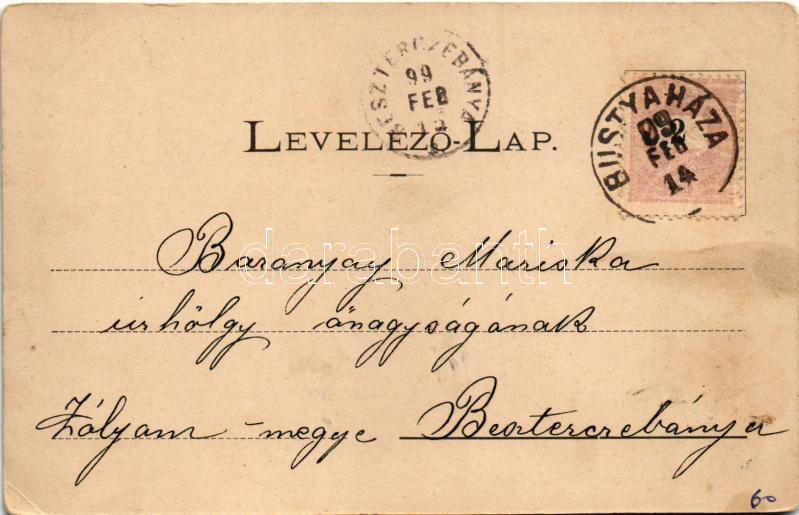 BESZTERCZEBÁNYA
99
FEB
BUSTYAHÁZA
99
FEB
14
2
LEVELEZŐ-LAP.
darabanth
Baranyay Mariska
úrhölgy őnagyságának
Zólyom-megye Beszterczebánya
60